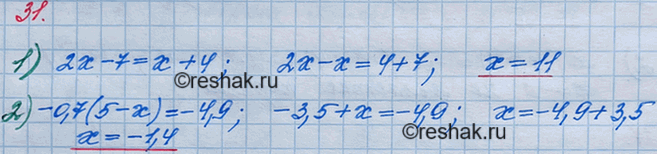 31.
1) 2x-7=x+4; 2x-x=4+7; x=11
©reshak.ru
2) -0,7(5-x)=-4,9; -3,5+x=-4,9; x=-4,9+3,5
x=-1,4
©reshak.ru